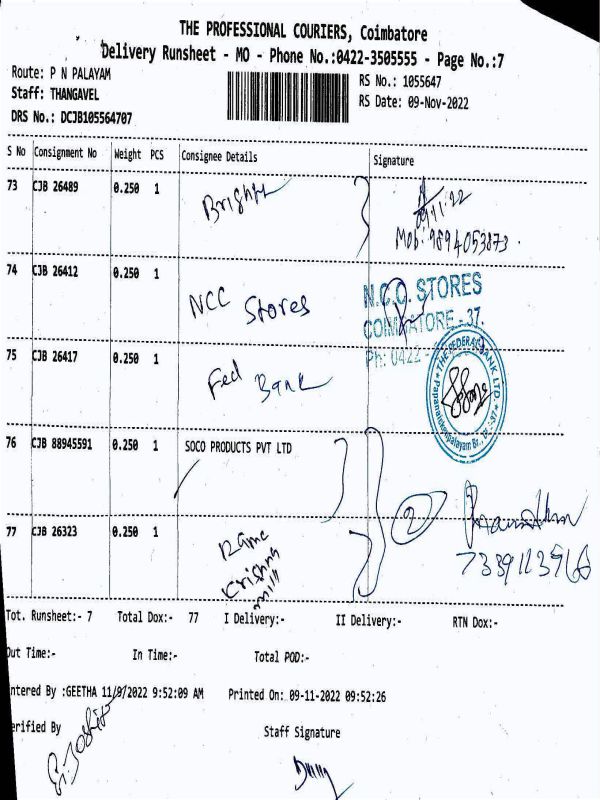 THE PROFESSIONAL COURIERS, Coimbatore
Delivery Runsheet - MO - Phone No.:0422-3505555 - Page No.:7
Route: P N PALAYAM
RS No.: 1055647
Staff: THANGAVEL
RS Date: 09-Nov-2022
DRS No.: DCJB105564707
S No Consignment No Weight PCS Consignee Details Signature
73 CJB 26489 0.250 1
09.11.22
Mob: 9894053873.
74 CJB 26412 0.250 1 NCC Stores
N.C.O. STORES
COIMBATORE - 37.
Ph: 0422 -
75 CJB 26417 0.250 1 Fed Bank
THE FEDERAL BANK LTD.
76 CJB 88945591 0.250 1 SOCO PRODUCTS PVT LTD
2
77 CJB 26323 0.250 1
Krishna
mill
Tot. Runsheet:- 7 Total Dox:- 77 I Delivery:- II Delivery:- RTN Dox:-
Out Time:- In Time:- Total POD:-
ntered By :GEETHA 11/9/2022 9:52:09 AM Printed On: 09-11-2022 09:52:26
erified By Staff Signature